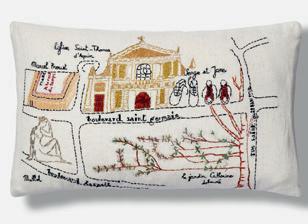 Église Saint-Thomas
d'Aquin
Marcel Proust
Serge et Jane
Boulevard saint germain
Boulevard Raspail
le jardin Catherine
labouré